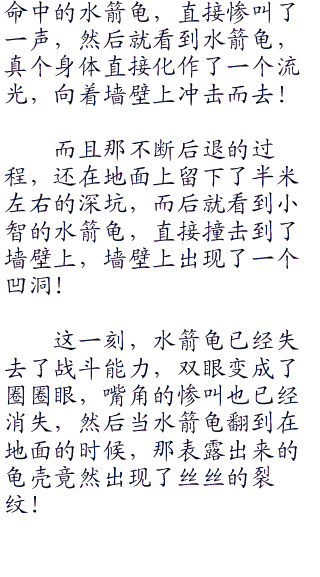 命中的水箭龟，直接惨叫了
一声，然后就看到水箭龟，
真个身体直接化作了一个流
光，向着墙壁上冲击而去！
而且那不断后退的过
程，还在地面上留下了半米
左右的深坑，而后就看到小
智的水箭龟，直接撞击到了
墙壁上，墙壁上出现了一个
凹洞！
这一刻，水箭龟已经失
去了战斗能力，双眼变成了
圈圈眼，嘴角的惨叫也已经
消失，然后当水箭龟翻到在
地面的时候，那表露出来的
龟壳竟然出现了丝丝的裂
纹！